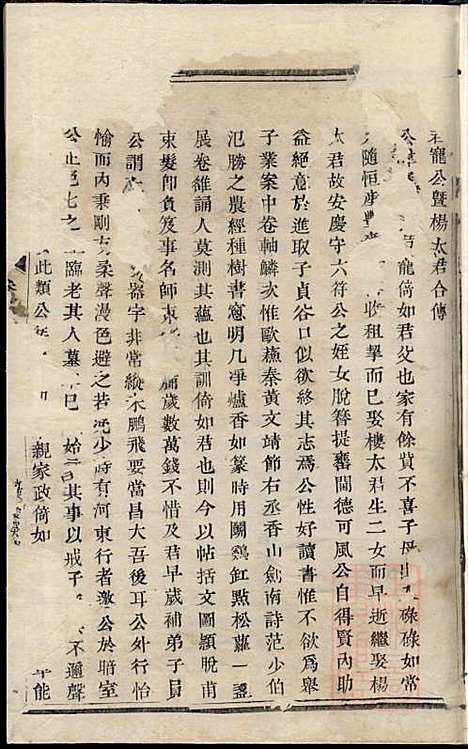 寵公暨楊太君合傳
龍倚如君父也家有餘貲不喜子母 碌碌如常
隨恒産 收租挈而已娶樓太君生二女而早逝繼娶楊
太君故安慶守六符公之姪女脫簪提甕閫德可風公自得賢內助
益絕意於進取子貞谷口似欲終其志焉公性好讀書惟不欲爲舉
子業案中卷軸鱗次惟歐蘇秦黃文靖節右丞香山劍南詩范少伯
氾勝之農經種樹書窻明几凈爐香如篆時用關鷄缸點松蘿一盞
展卷維誦人莫測其蘊也其訓倚如君也則今以帖括文圖頴脫甫
束髮卽負笈事名師東 脯歲數萬錢不惜及君早歲補弟子員
公謂 器宇非常縱不鵬飛要當昌大吾後耳公外行怡
愉而內秉剛 柔聲漫色避之若 少時有河東行者激公於暗室
公正色 臨老其人墓 已 始 其事以戒子 不邇聲
此類公 親家政倚如 能